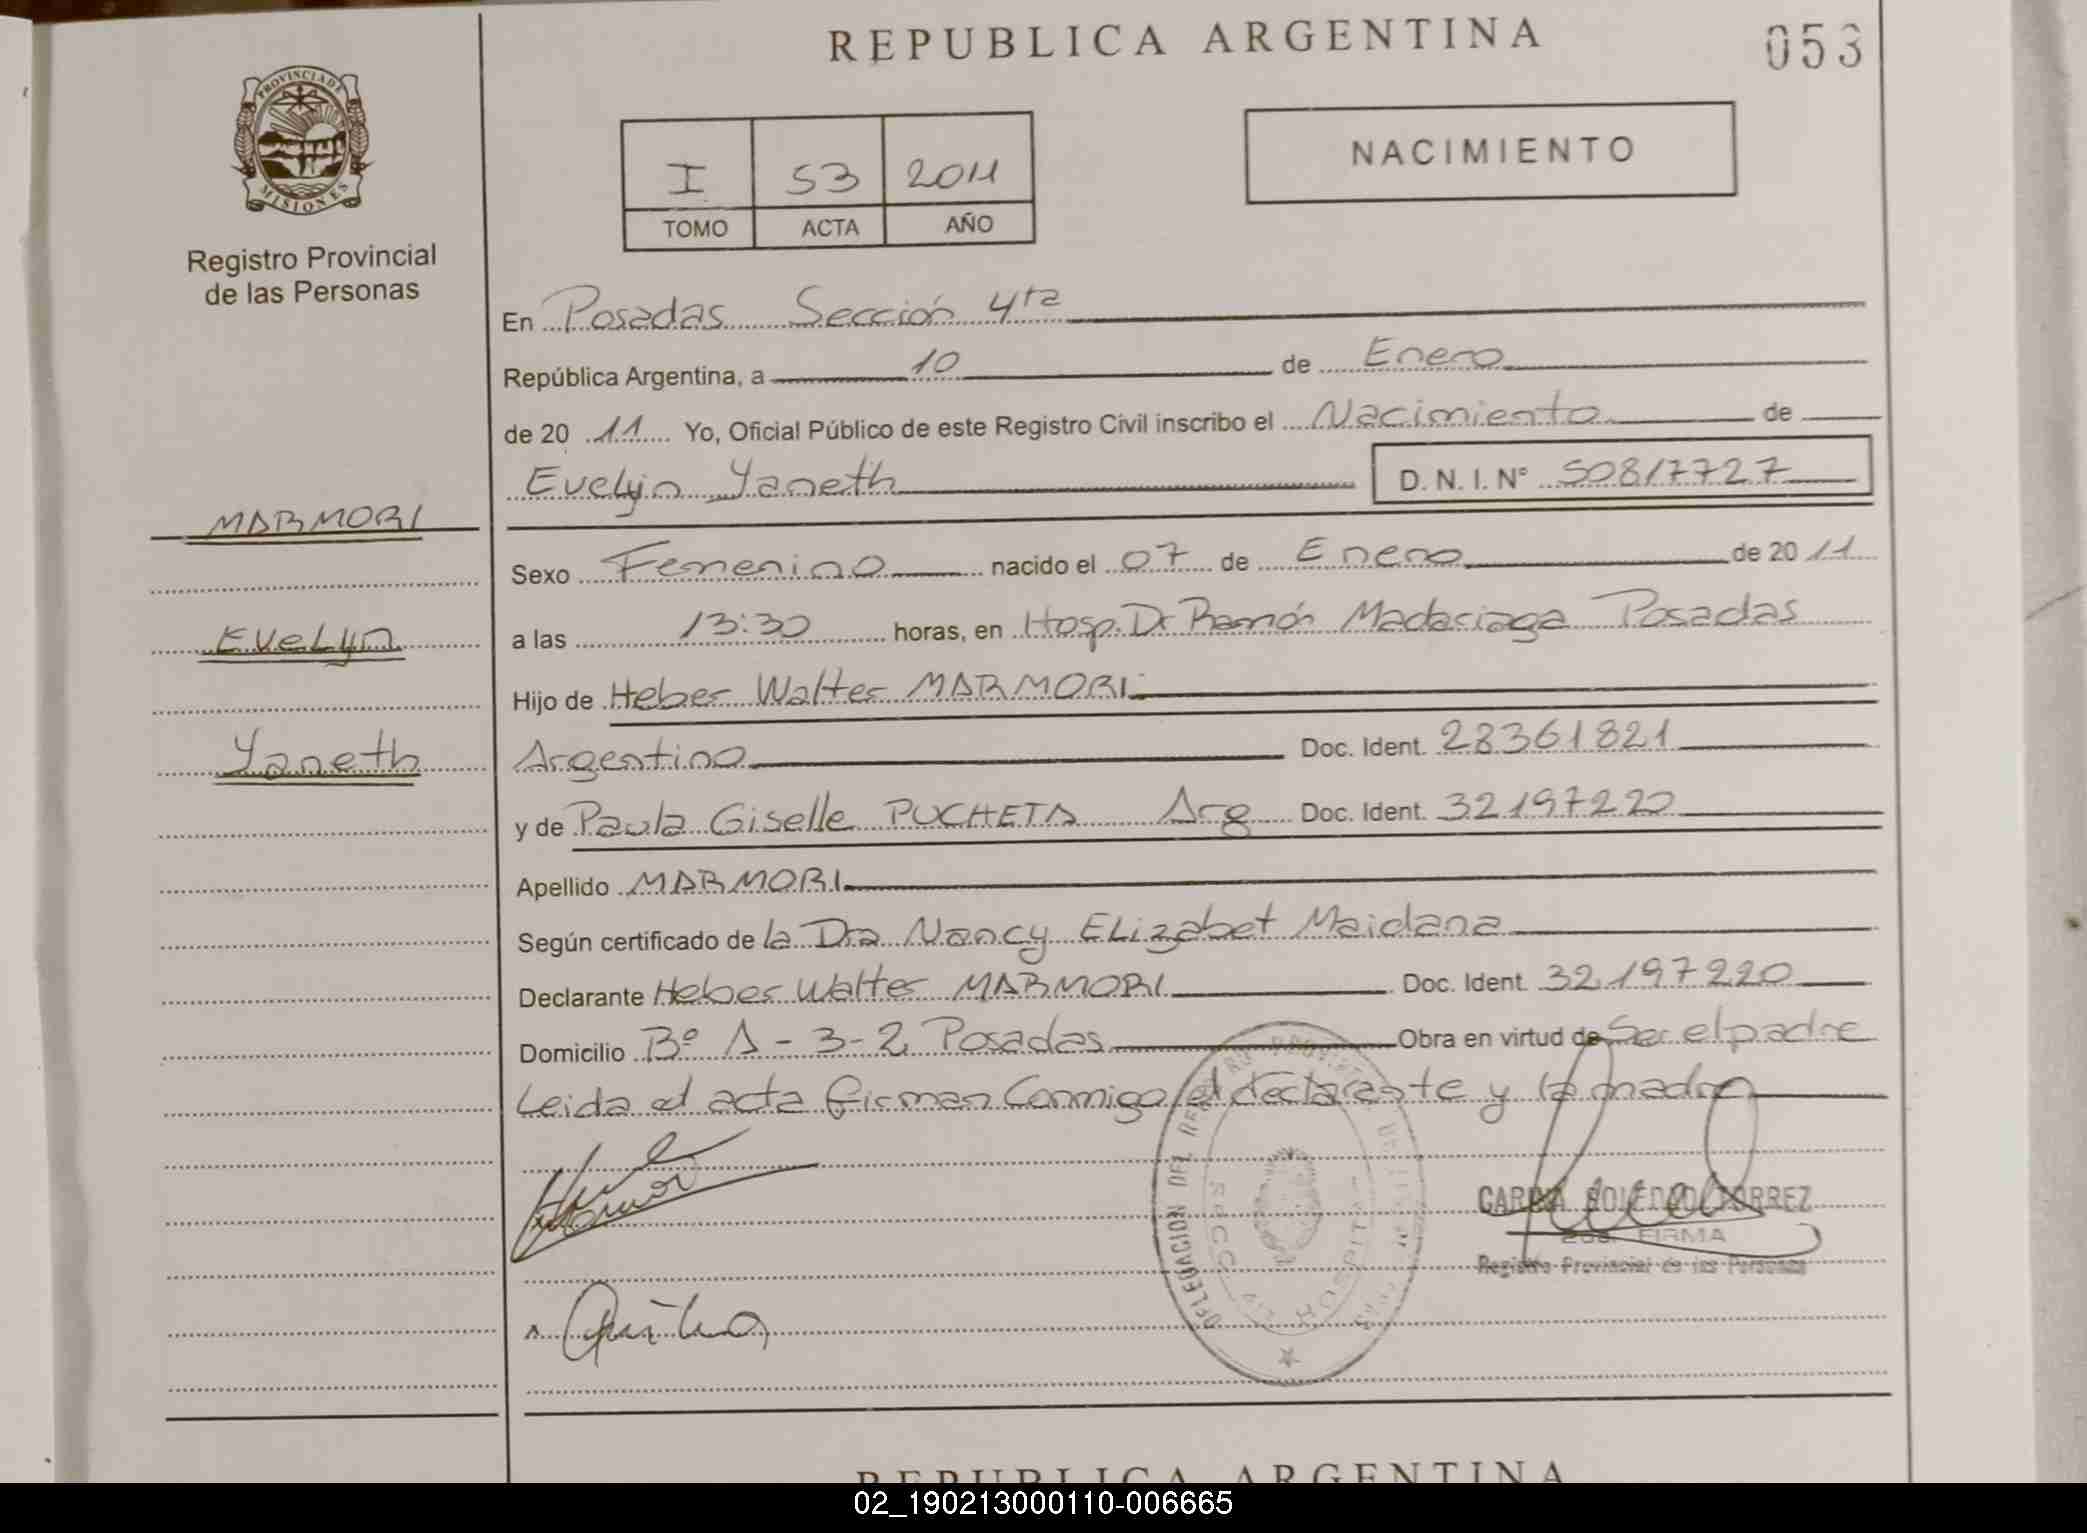 REPUBLICA ARGENTINA
053
PROVINCIA DE
MISIONES
Registro Provincial
de las Personas
I 53 2011
TOMO ACTA AÑO
NACIMIENTO
En Posadas Sección 4ta
República Argentina, a 10 de Enero
de 20 11 Yo, Oficial Público de este Registro Civil inscribo el Nacimiento de
Evelyn Yaneth D. N. I. N° 50817727
MARMORI
Sexo Femenino nacido el 07 de Enero de 20 11
Evelyn
a las 13:30 horas, en Hosp. Dr Ramón Madariaga Posadas
Hijo de Heber Walter MARMORI
Yaneth
Argentino Doc. Ident. 28361821
y de Paula Giselle PUCHETA Arg Doc. Ident. 32197220
Apellido MARMORI
Según certificado de la Dra Nancy Elizabet Maidana
Declarante Heber Walter MARMORI Doc. Ident. 32197220
Domicilio B° A-3-2 Posadas Obra en virtud de Ser el padre
Leida el acta firman Conmigo el declarante y la madre
DELEGACION DEL
SECC HOSPITAL
SOLEDAD TORREZ
FIRMA
Registro Provincial de las Personas
REPUBLICA ARGENTINA
02_190213000110-006665